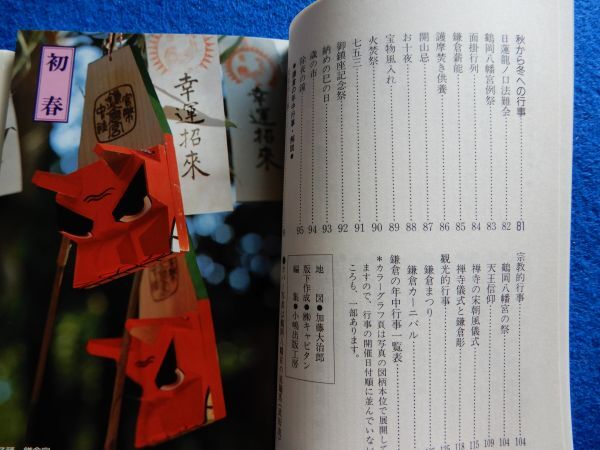 初春
幸運招来
幸運招来
鎌倉宮
秋から冬への行事 81
日蓮龍ノ口法難会 82
鶴岡八幡宮例祭 83
面掛行列 84
鎌倉薪能 85
護摩焚き供養 86
開山忌 87
お十夜 88
宝物風入れ 89
火焚祭 90
七五三 91
御鎮座記念祭 92
納めの巳の日 93
歳の市 94
除夜の鐘 95
●鎌倉の年中行事・解説●
宗教的行事 104
鶴岡八幡宮の祭 104
天王信仰
禅寺の宋朝風儀式 109
禅寺儀式と鎌倉彫
観光的行事
鎌倉まつり
鎌倉カーニバル
鎌倉の年中行事一覧表
＊カラーグラフ頁は写真の図柄本位で展開して
ますので、行事の開催日付順に並んでいない
ころも、一部あります。
地図●加藤大治郎
版下作成●㈱キャビタン
編集●小嶋出版工房